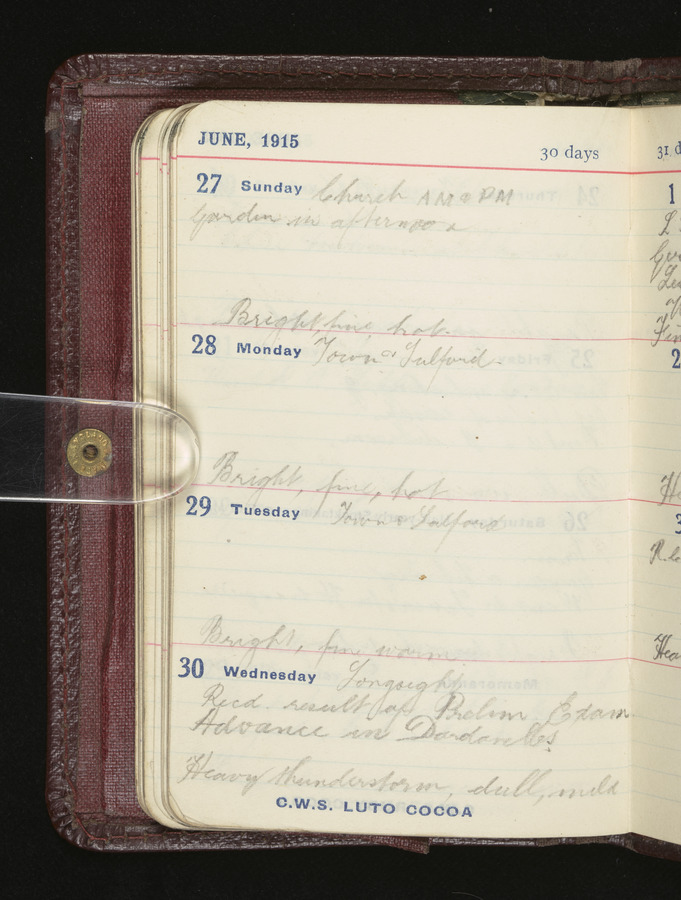 JUNE, 1915
30 days
27 Sunday Church AM & PM
Garden in afternoon
Bright, fine, hot.
28 Monday Town & Salford.
Bright, fine, hot
29 Tuesday Town & Salford
Bright, fine warm
30 Wednesday Longsight
Recd. result of Prelim. Exam
Advance in Dardanelles
Heavy thunderstorm, dull, mild
C.W.S. LUTO COCOA
31 d
1
2